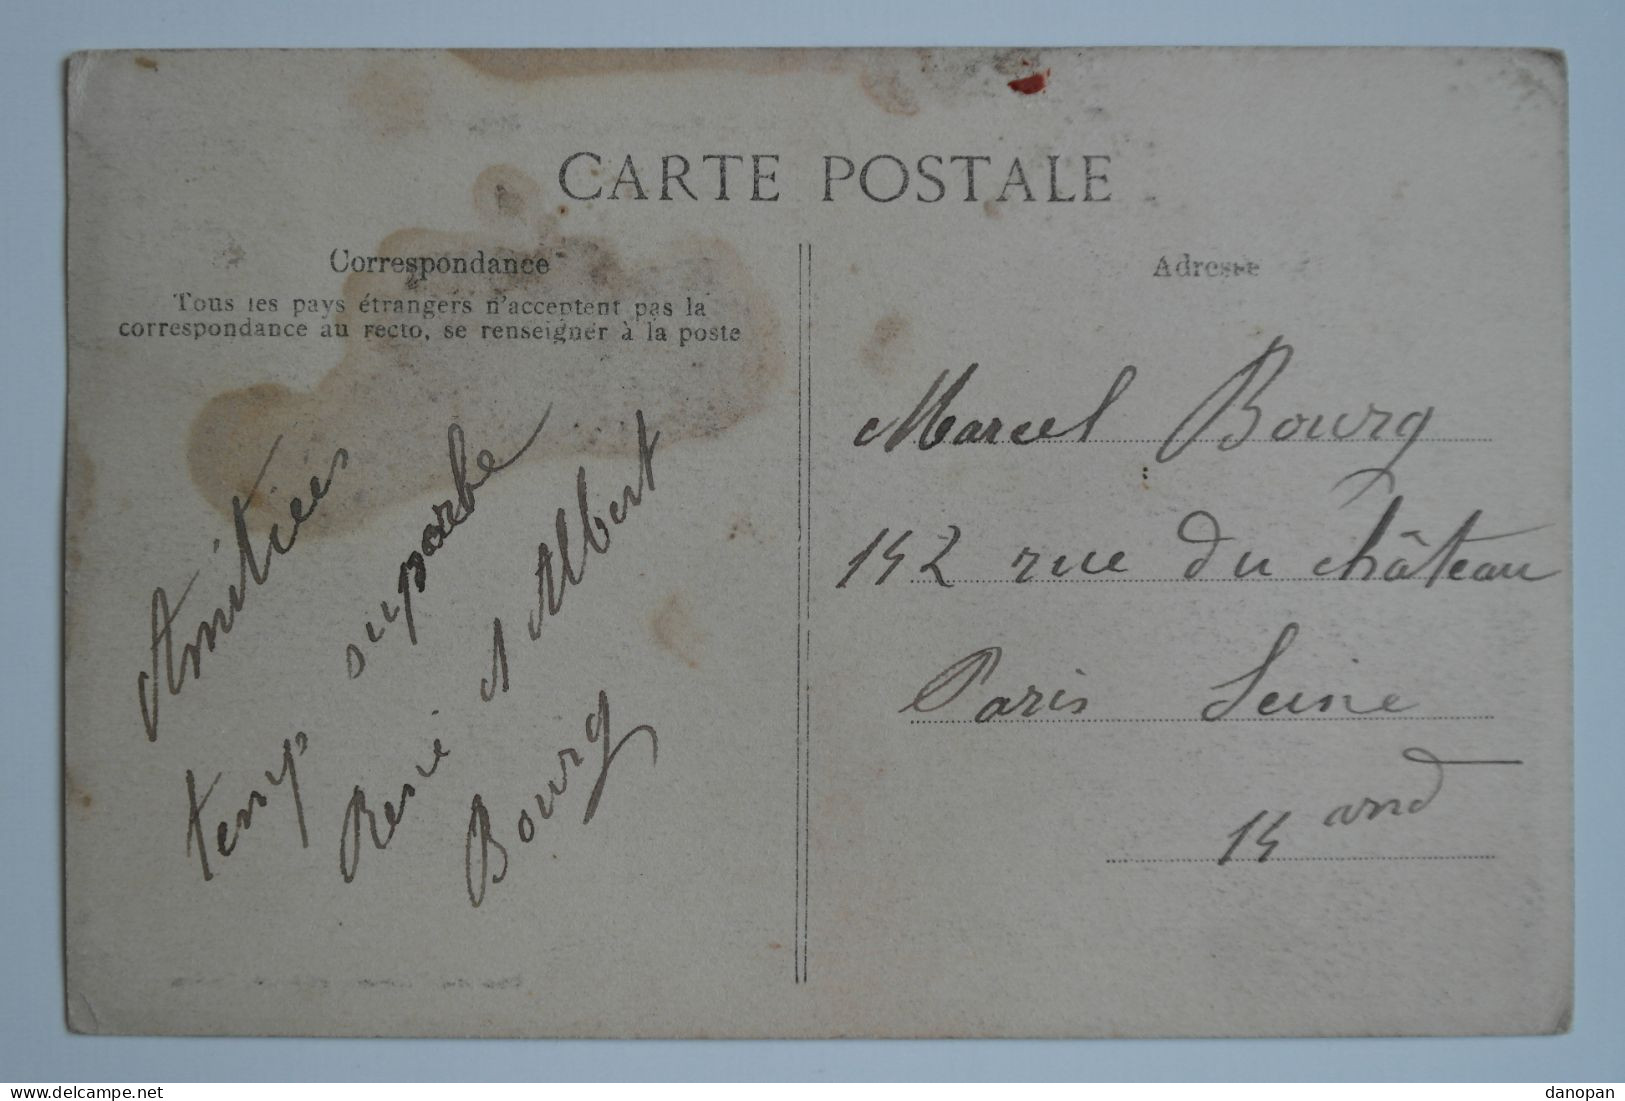 CARTE POSTALE
Correspondance
Tous les pays étrangers n'acceptent pas la
correspondance au recto, se renseigner à la poste
Amitiées
temp superbe
René et Albert
Bourg
Adresse
Marcel Bourg
152 rue du château
Paris Seine
15 arrd
danopan